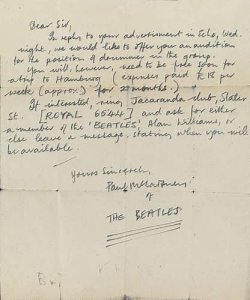 Dear Sir,
In reply to your advertisement in Echo, Wed.
night, we would like to offer you an audition
for the position of drummer in the group.
You will, however, need to be free soon for
a trip to Hamburg (expenses paid £18 per
week (approx.) for 2 months.)
If interested, ring Jacaranda club, Slater
St. [ROYAL 6544] and ask for either
a member of the 'BEATLES', Alan Williams, or
else leave a message, stating when you will
be available.
Yours Sincerely,
Paul McCartney
of
THE BEATLES.